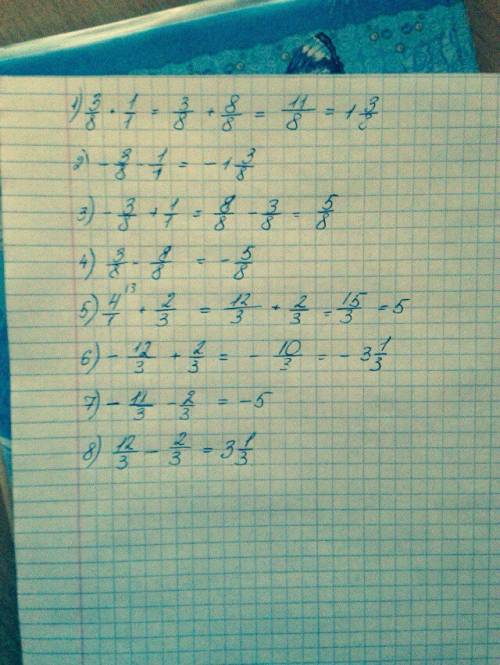 1) 3/8 + 1/1 = 3/8 + 8/8 = 11/8 = 1 3/8
2) - 3/8 - 1/1 = - 1 3/8
3) - 3/8 + 1/1 = 8/8 - 3/8 = 5/8
4) 3/8 - 8/8 = - 5/8
5) 4/1 |3 + 2/3 = 12/3 + 2/3 = 15/3 = 5
6) - 12/3 + 2/3 = - 10/3 = - 3 1/3
7) - 11/3 - 2/3 = - 5
8) 12/3 - 2/3 = 3 1/3